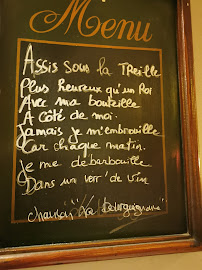 Menu
Assis sous la Treille
Plus heureux qu'un Roi
Avec ma bouteille
A côté de moi.
Jamais je m'embrouille
Car chaque matin.
Je me débarbouille
Dans un verr' de vin
chanson "La Bourguignonne"